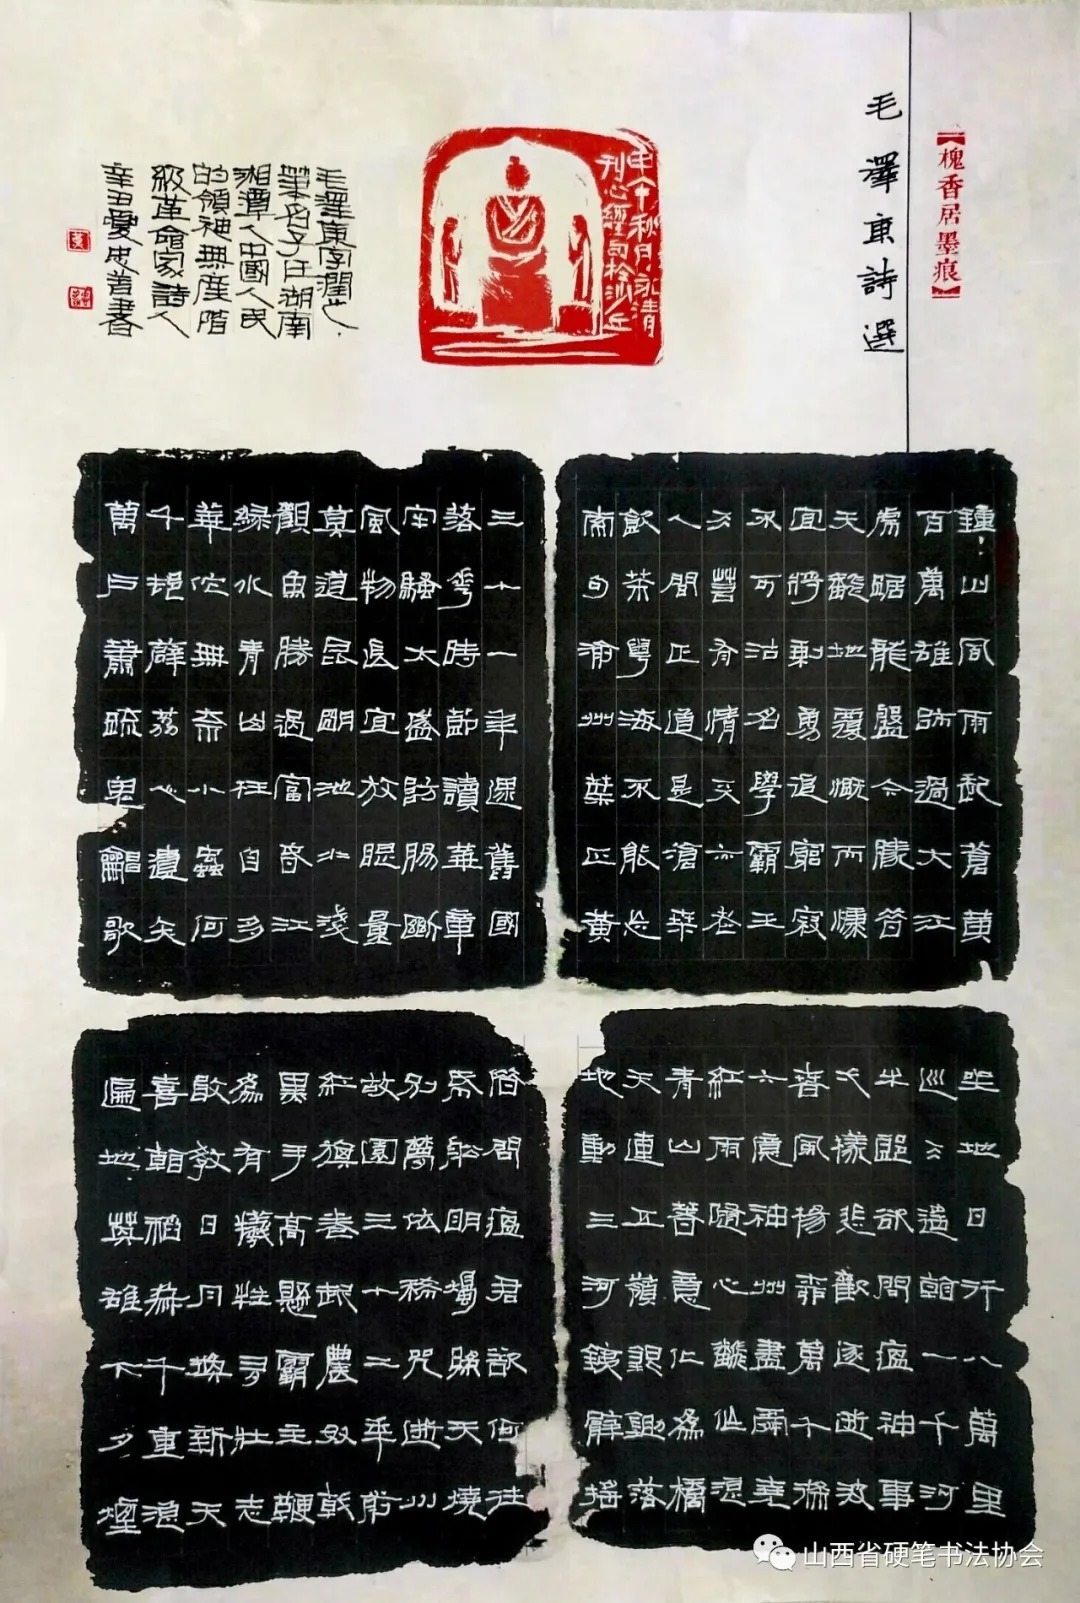 【槐香居墨痕】
毛澤東詩選
鍾山風雨起蒼黄
百萬雄師過大江
虎踞龍盤今勝昔
天翻地覆慨而慷
宜將剩勇追窮寇
不可沽名學霸王
天若有情天亦老
人間正道是滄桑
飲茶粤海不能忘
索句渝州葉正黄
三十一年還舊國
落花時節讀華章
牢騷太盛防腸斷
風物長宜放眼量
莫道昆明池水淺
觀魚勝過富春江
緑水青山枉自多
華佗無奈小蟲何
千邨薜荔人遺矢
萬户蕭疏鬼唱歌
坐地日行八萬里
巡天遥看一千河
牛郎欲問瘟神事
一樣悲歡逐逝波
春風楊柳萬千條
六億神州盡舜堯
紅雨隨心翻作浪
青山着意化爲橋
天連五嶺銀鋤落
地動三河鐵臂摇
借問瘟君欲何往
紙船明燭照天燒
别夢依稀咒逝川
故園三十二年前
紅旗卷起農奴戟
黑手高懸霸主鞭
爲有犧牲多壯志
敢教日月换新天
喜看稻菽千重浪
遍地英雄下夕煙
毛澤東字潤之
筆名子任湖南
湘潭人中國人民
的領袖無産階
級革命家詩人
辛丑夏忠善書
山西省硬笔书法协会